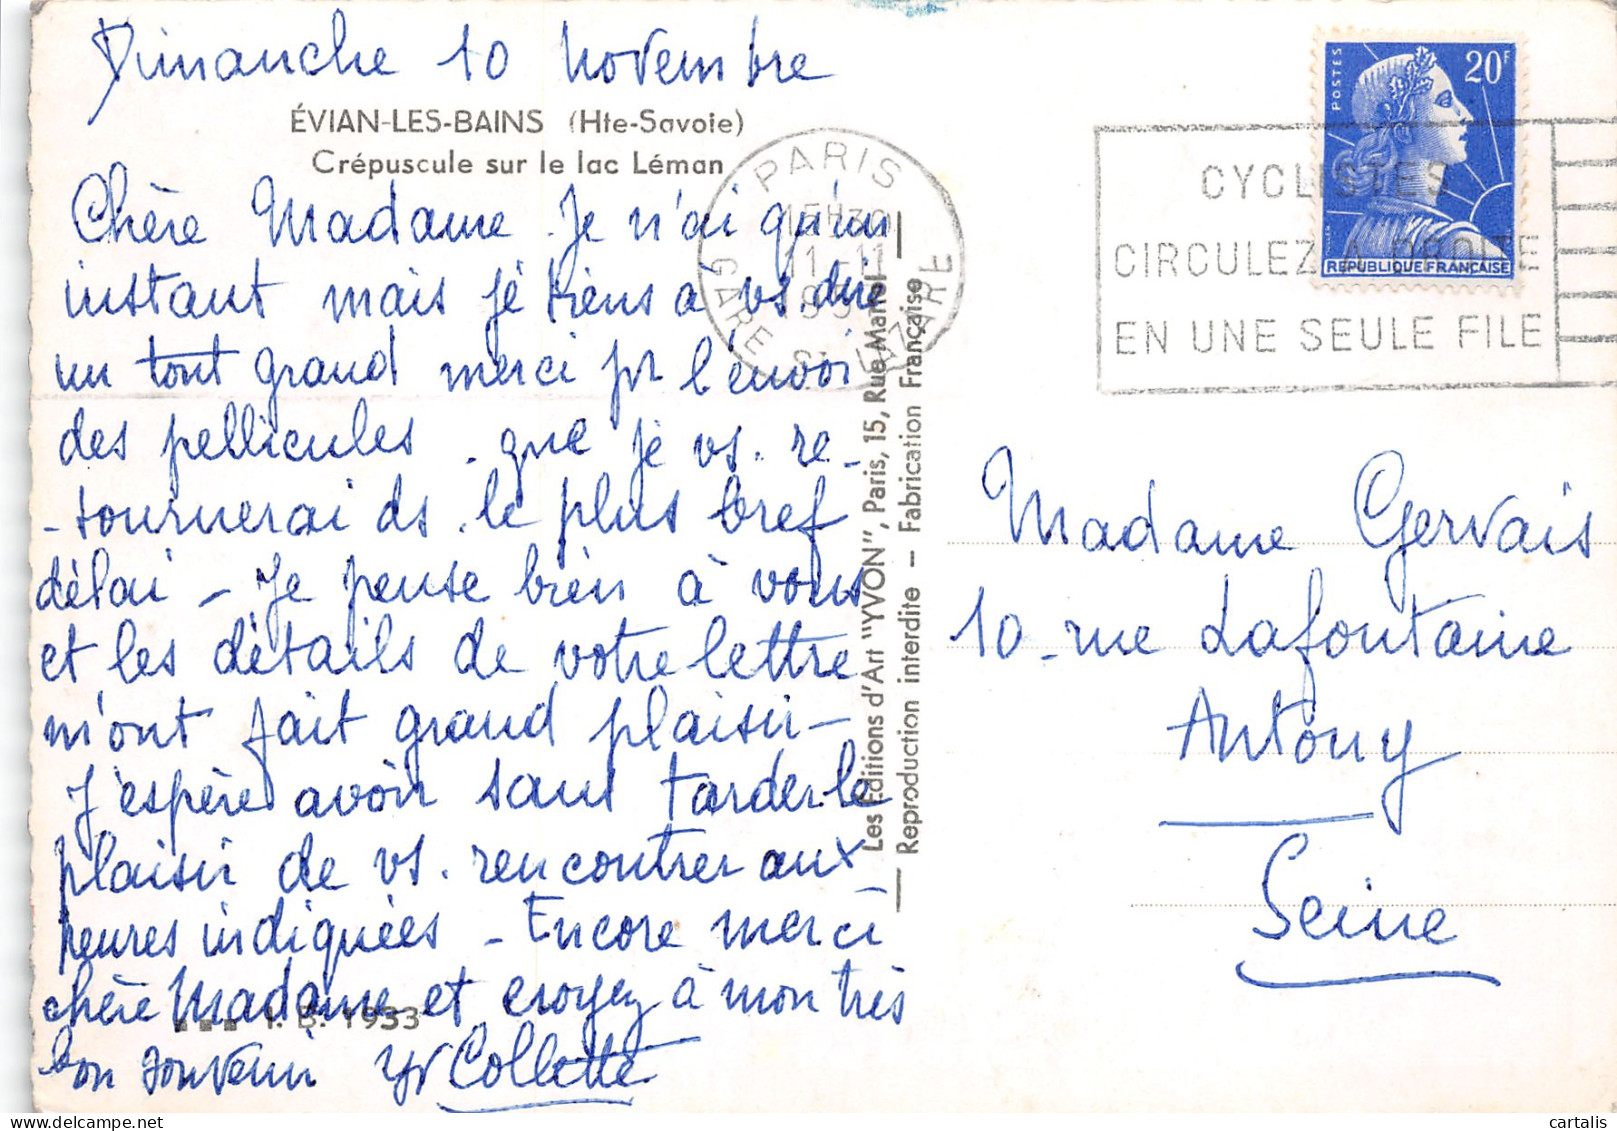 Dimanche 10 Novembre
ÉVIAN-LES-BAINS (Hte-Savoie)
Crépuscule sur le lac Léman
Chère Madame. Je n'ai qu'un
instant mais je tiens à vs. dire
un tout grand merci pr l'envoi
des pellicules. que je vs. re-
-tournerai ds. le plus bref
délai - Je pense bien à vous
et les détails de votre lettre
m'ont fait grand plaisir -
J'espère avoir sans tarder le
plaisir de vs. rencontrer aux
heures indiquées - Encore merci
chère Madame et croyez à mon très
bon souvenir Collette
I. B. 1933
Les Éditions d'Art "YVON", Paris, 15, Rue Martel
Reproduction interdite - Fabrication Française
PARIS
GARE ST LAZARE
11-11
POSTES
20F
REPUBLIQUE FRANÇAISE
CYCLISTES
CIRCULEZ A DROITE
EN UNE SEULE FILE
Madame Gervais
10 - rue Lafontaine
Antony
Seine
cartalis